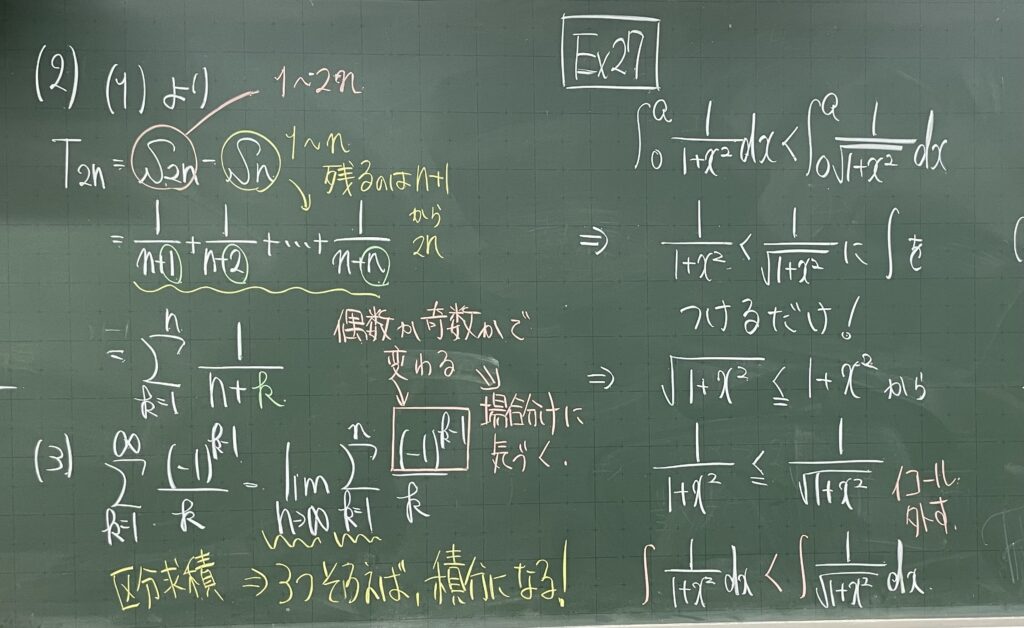 (2) (1)より
1~2n
T₂ₙ = S₂ₙ - Sₙ
1~n
残るのはn+1
から
2n
= 1/(n+1) + 1/(n+2) + … + 1/(n+n)
= Σ_{k=1}^{n} 1/(n+k)
偶数か奇数かで
変わる ⇒
場合分けに
気づく.
(3) Σ_{k=1}^{∞} (-1)^{k-1}/k = lim_{n→∞} Σ_{k=1}^{n} (-1)^{k-1}/k
区分求積 ⇒ 3つそろえば, 積分になる!
Ex27
∫_0^a 1/(1+x²) dx < ∫_0^a 1/√(1+x²) dx
⇒ 1/(1+x²) < 1/√(1+x²) に ∫ を
つけるだけ!
⇒ √(1+x²) ≦ 1+x² から
1/(1+x²) ≦ 1/√(1+x²)
イコール
外す.
∫ 1/(1+x²) dx < ∫ 1/√(1+x²) dx.